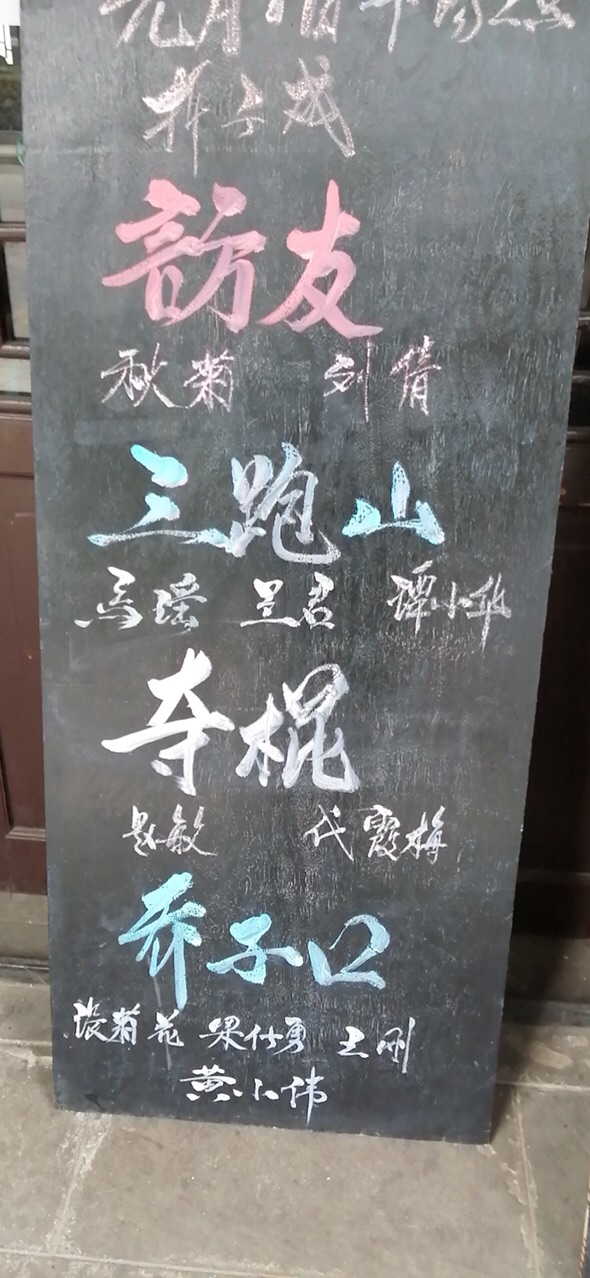 折子戏
訪友
秋菊 刘倩
三跑山
马瑶 昱君 谭小华
夺棍
敏 代霞梅
乔子口
張菊花 梁仕勇 王刚
黄小伟